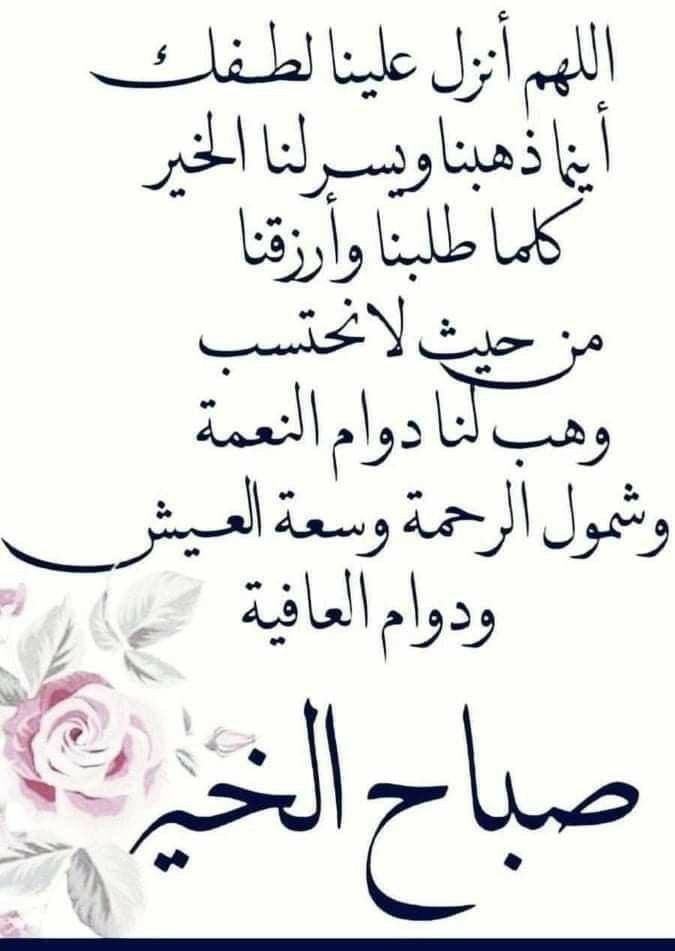 اللهم أنزل علينا لطفك
أينما ذهبنا ويسر لنا الخير
كلما طلبنا وأرزقنا
من حيث لا نحتسب
وهب لنا دوام النعمة
وشمول الرحمة وسعة العيش
ودوام العافية
صباح الخير